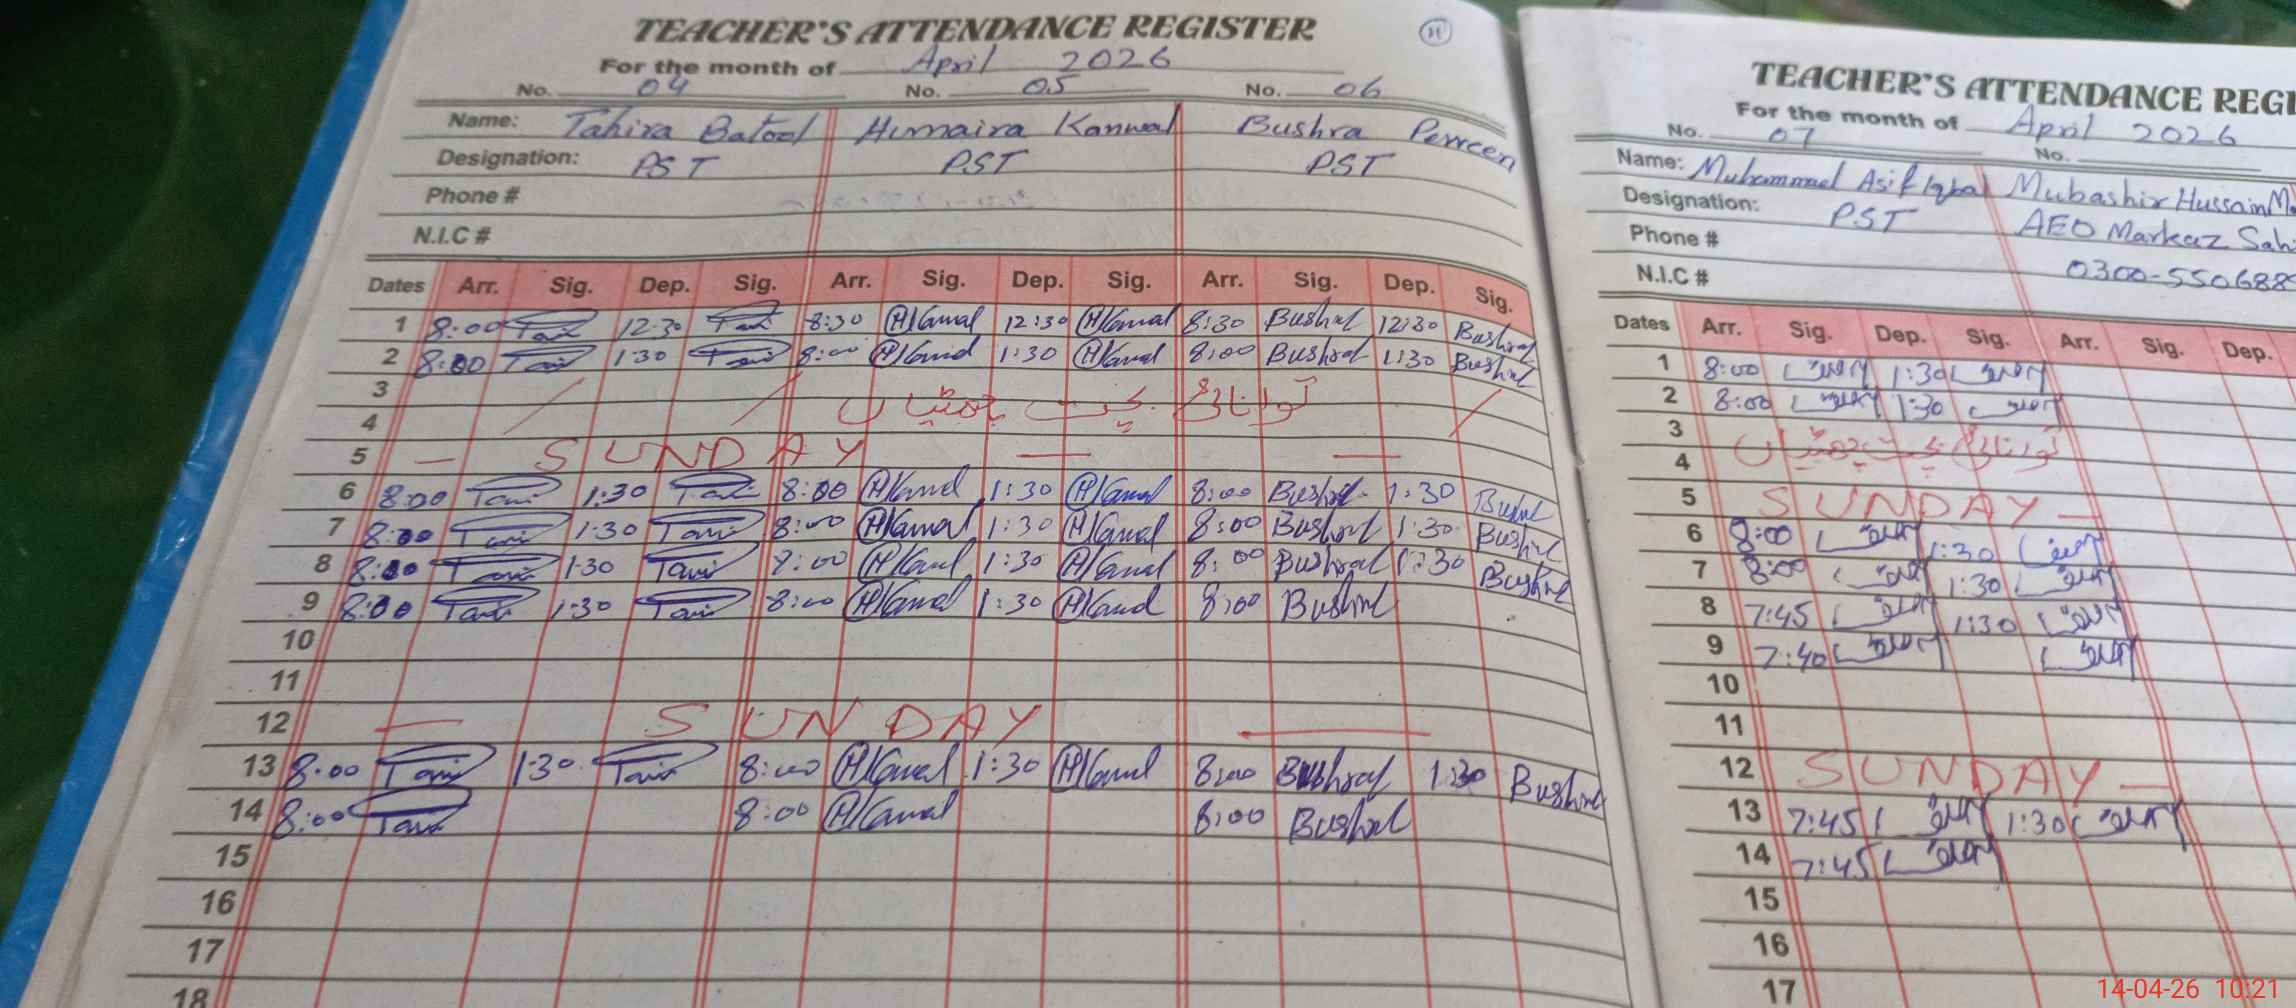 TEACHER'S ATTENDANCE REGISTER
For the month of April 2026
No. 04 No. 05 No. 06
Name: Tahira Batool Humaira Kanwal Bushra Perveen
Designation: PST PST PST
Phone #
N.I.C #
Dates Arr. Sig. Dep. Sig. Arr. Sig. Dep. Sig. Arr. Sig. Dep. Sig.
1 8:00 12:30 8:30 12:30 8:30 Bushra 12:30 Bushra
2 8:00 1:30 8:00 1:30 8:00 Bushra 1:30 Bushra
3 توانائی بچت چھٹیاں
4
5 — SUNDAY — —
6 8:00 1:30 8:00 1:30 8:00 Bushra 1:30 Bushra
7 8:00 1:30 8:00 1:30 8:00 Bushra 1:30 Bushra
8 8:00 1:30 8:00 1:30 8:00 Bushra 1:30 Bushra
9 8:00 1:30 8:00 1:30 8:00 Bushra
10
11
12 — SUNDAY —
13 8:00 1:30 8:00 1:30 8:00 Bushra 1:30 Bushra
14 8:00 8:00 8:00 Bushra
15
16
17
18
TEACHER'S ATTENDANCE REGI
For the month of April 2026
No. 07 No.
Name: Muhammad Asif Iqbal Mubashir Hussain M
Designation: PST AEO Markaz Sah
Phone #
N.I.C # 0300-550688
Dates Arr. Sig. Dep. Sig. Arr. Sig. Dep.
1 8:00 1:30
2 8:00 1:30
3 توانائی بچت چھٹیاں
4
5 SUNDAY —
6 8:00 1:30
7 8:00 1:30
8 7:45 1:30
9 7:40
10
11
12 SUNDAY —
13 7:45 1:30
14 7:45
15
16
17
14-04-26 10:21